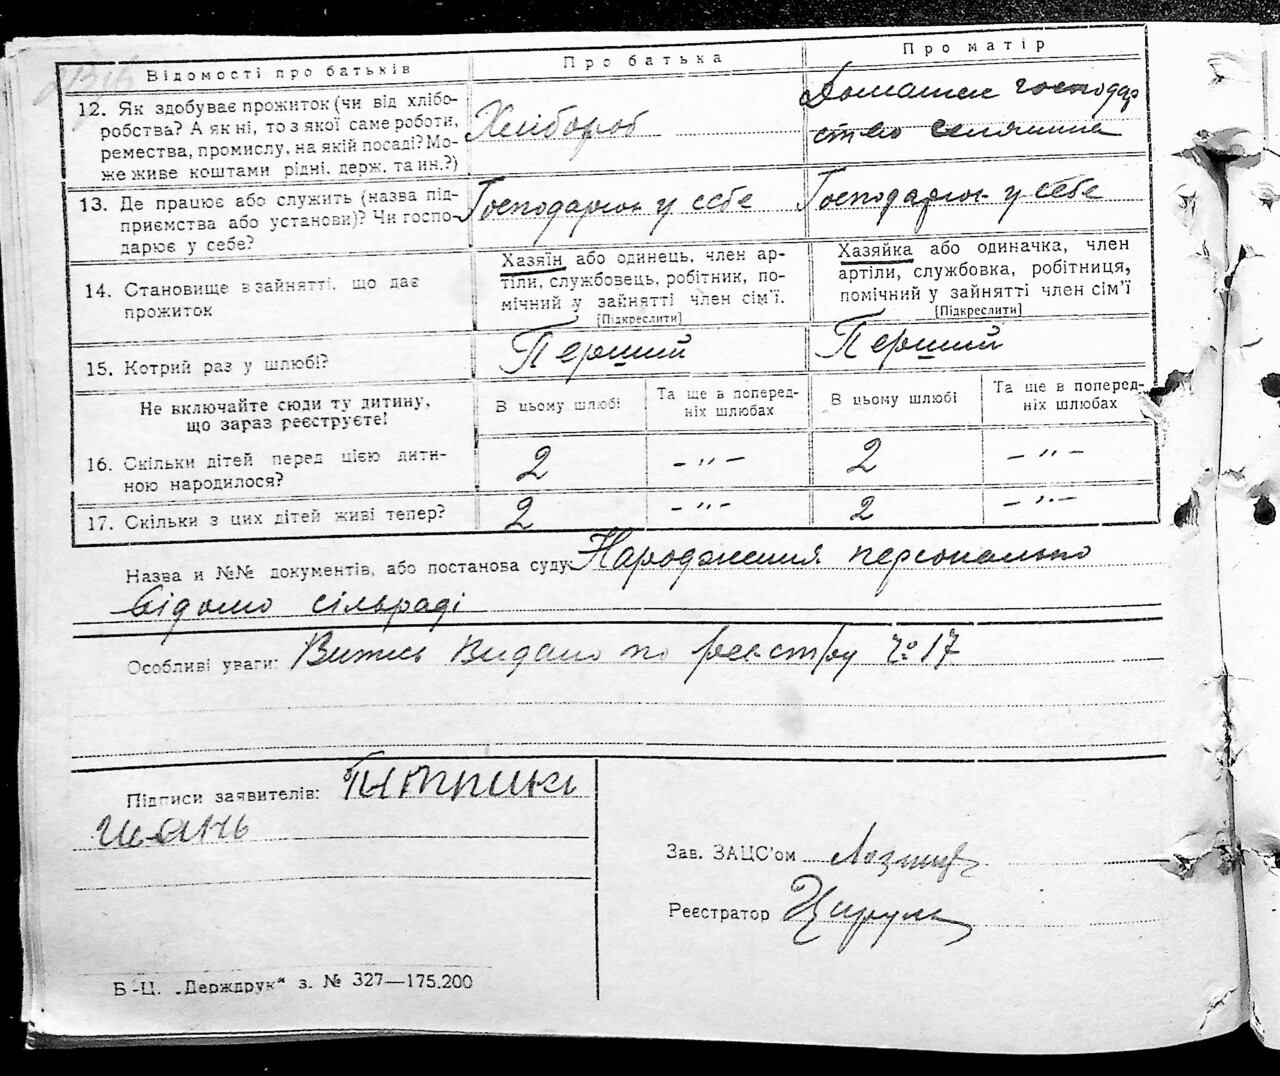 Відомості про батьків
Про батька
Про матір
12. Як здобуває прожиток (чи від хлібо-
робства? А як ні, то з якої саме роботи,
ремества, промислу, на якій посаді? Мо-
же живе коштами рідні, держ. та ин.?)
Хлібороб
Домашнє господар
ство селянина
13. Де працює або служить (назва під-
приємства або установи)? Чи госпо-
дарює у себе?
Господарює у себе
Господарює у себе
14. Становище в зайнятті, що дає
прожиток
Хазяїн або одинець, член ар-
тіли, службовець, робітник, по-
мічний у зайнятті член сім'ї.
[Підкреслити]
Хазяйка або одиначка, член
артіли, службовка, робітниця,
помічний у зайнятті член сім'ї
[Підкреслити]
15. Котрий раз у шлюбі?
Перший
Перший
Не включайте сюди ту дитину,
що зараз реєструєте!
В цьому шлюбі
Та ще в поперед-
ніх шлюбах
В цьому шлюбі
Та ще в поперед-
ніх шлюбах
16. Скільки дітей перед цією дити-
ною народилося?
2
-"-
2
-"-
17. Скільки з цих дітей живі тепер?
2
-"-
2
-"-
Назва и №№ документів, або постанова суду: Народження персонально
відомо сільраді
Особливі уваги: Випись видано по реєстру № 17
Підписи заявителів:
Зав. ЗАЦС'ом
Реєстратор
Б-Ц. „Держдрук" з. № 327—175.200